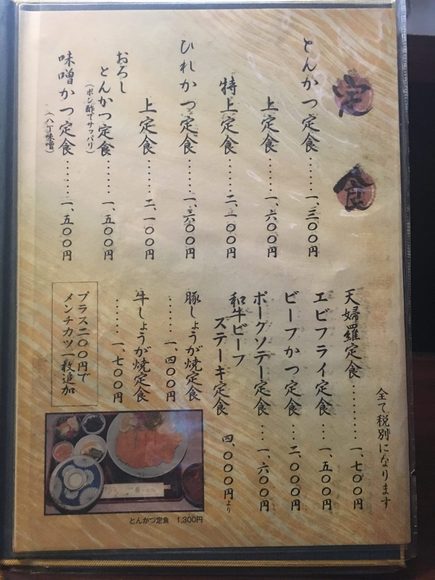 定食
とんかつ定食……一、三〇〇円
上定食……一、六〇〇円
特上定食……二、一〇〇円
ひれかつ定食……一、六〇〇円
上定食……二、一〇〇円
おろし
とんかつ定食……一、五〇〇円
（ポン酢でサッパリ）
味噌かつ定食……一、五〇〇円
（八丁味噌）
全て税別になります
天婦羅定食………一、七〇〇円
エビフライ定食…一、五〇〇円
ビーフかつ定食…二、〇〇〇円
ポークソテー定食…一、六〇〇円
和牛ビーフ
ステーキ定食 四、〇〇〇円より
豚しょうが焼定食
……一、四〇〇円
牛しょうが焼定食
……一、七〇〇円
プラス二〇〇円で
メンチカツ一枚追加
とんかつ定食 1,300円